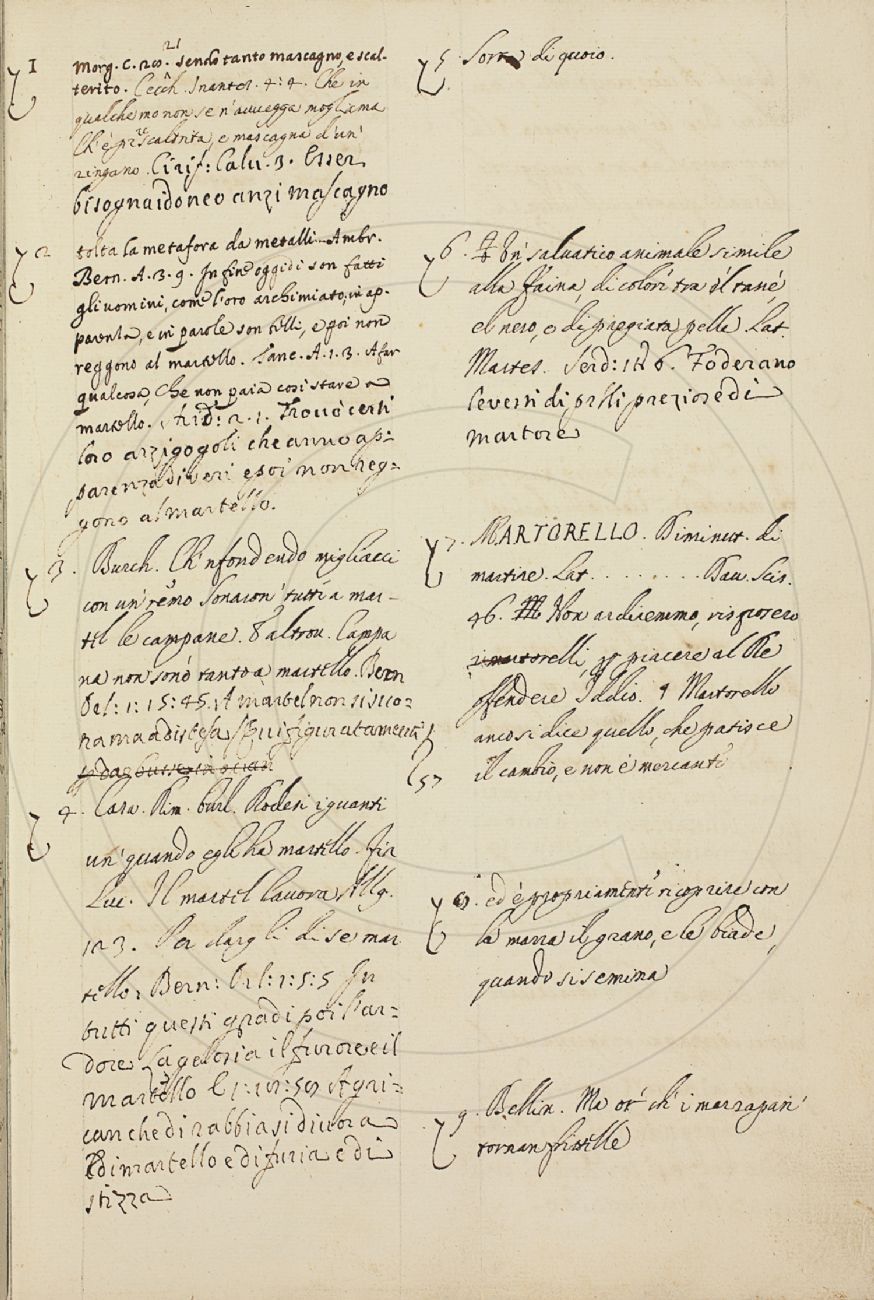 1 Morg. c. 20. 21 sendo tanto mascagno, e scal-
terito. Cecch. Inantes. 4: 4. Che in
qualche mo non se n'avvegga mogliama
Ch'è più scaltrita, e mascagna d'un
zingano. Cirif: Calv. 3. Esser
bisogna idoneo anzi mascagno
2 tolta la metafora da metalli. Ambr.
Bern. A. 3. 9. In fine oggidì son fatti
gli uomini, come l'oro archimiato, in ap-
parenza, e in parole son belli, e poi non
reggono al martello. Lasc. A. 1. 3. A far
qualcosa, che non paia così stare a
martello. Arid: 2. 1. Trovò certi
loro arzigogoli che anno ap:
parenza di veri e poi non reg:
gono al martello.
3. Burch. Ch'nfondendo migliacci
con un remo Sonaron' tutti a mar-
tel le campane. E altrov. Campa
na non sonò tanto a martello. Bern
Orl: 1: 15: 45. A martel non si suo:
na ma a distesa / Qui figuratamente /
4. Cara. Rim. burl. Roder i guanti
un' quando egli ha martello. fir
Luc. Il martel lavora Alleg.
123. Per dargli di se mar
tello, Bern: Orl: 1: 5: 5 In
tutti questi gradi poi l'ar:
dore La gelosia il furore e il
martello E 1: Agri:
can che di rabbia si divora
E di martello e di furia e di
stizza
5 Sorta di quoio.
6. Un' salvatico animale simile
alla faina, di colori tra 'l tanè
el nero, e di pregiata pelle Lat.
Martes. Serd: 1 6. Foderano
le vesti di pelli preziose di
martore
7. MARTORELLO. Diminut. di
martire. Lat. . . . . . . . Dav. Scis.
46. Non ardiremmo, risposero
i martorelli, per piacere al Re
offendere Iddio. ¶ Martorello
ancosi dice quello, che patisce
il cambio, e non è mercante
57
8. ed è propriamente ricoprire con
la marra il grano, e le biade,
quando si semina
9. Bellin. Ma or' ch' i marzapan'
tornan frittelle